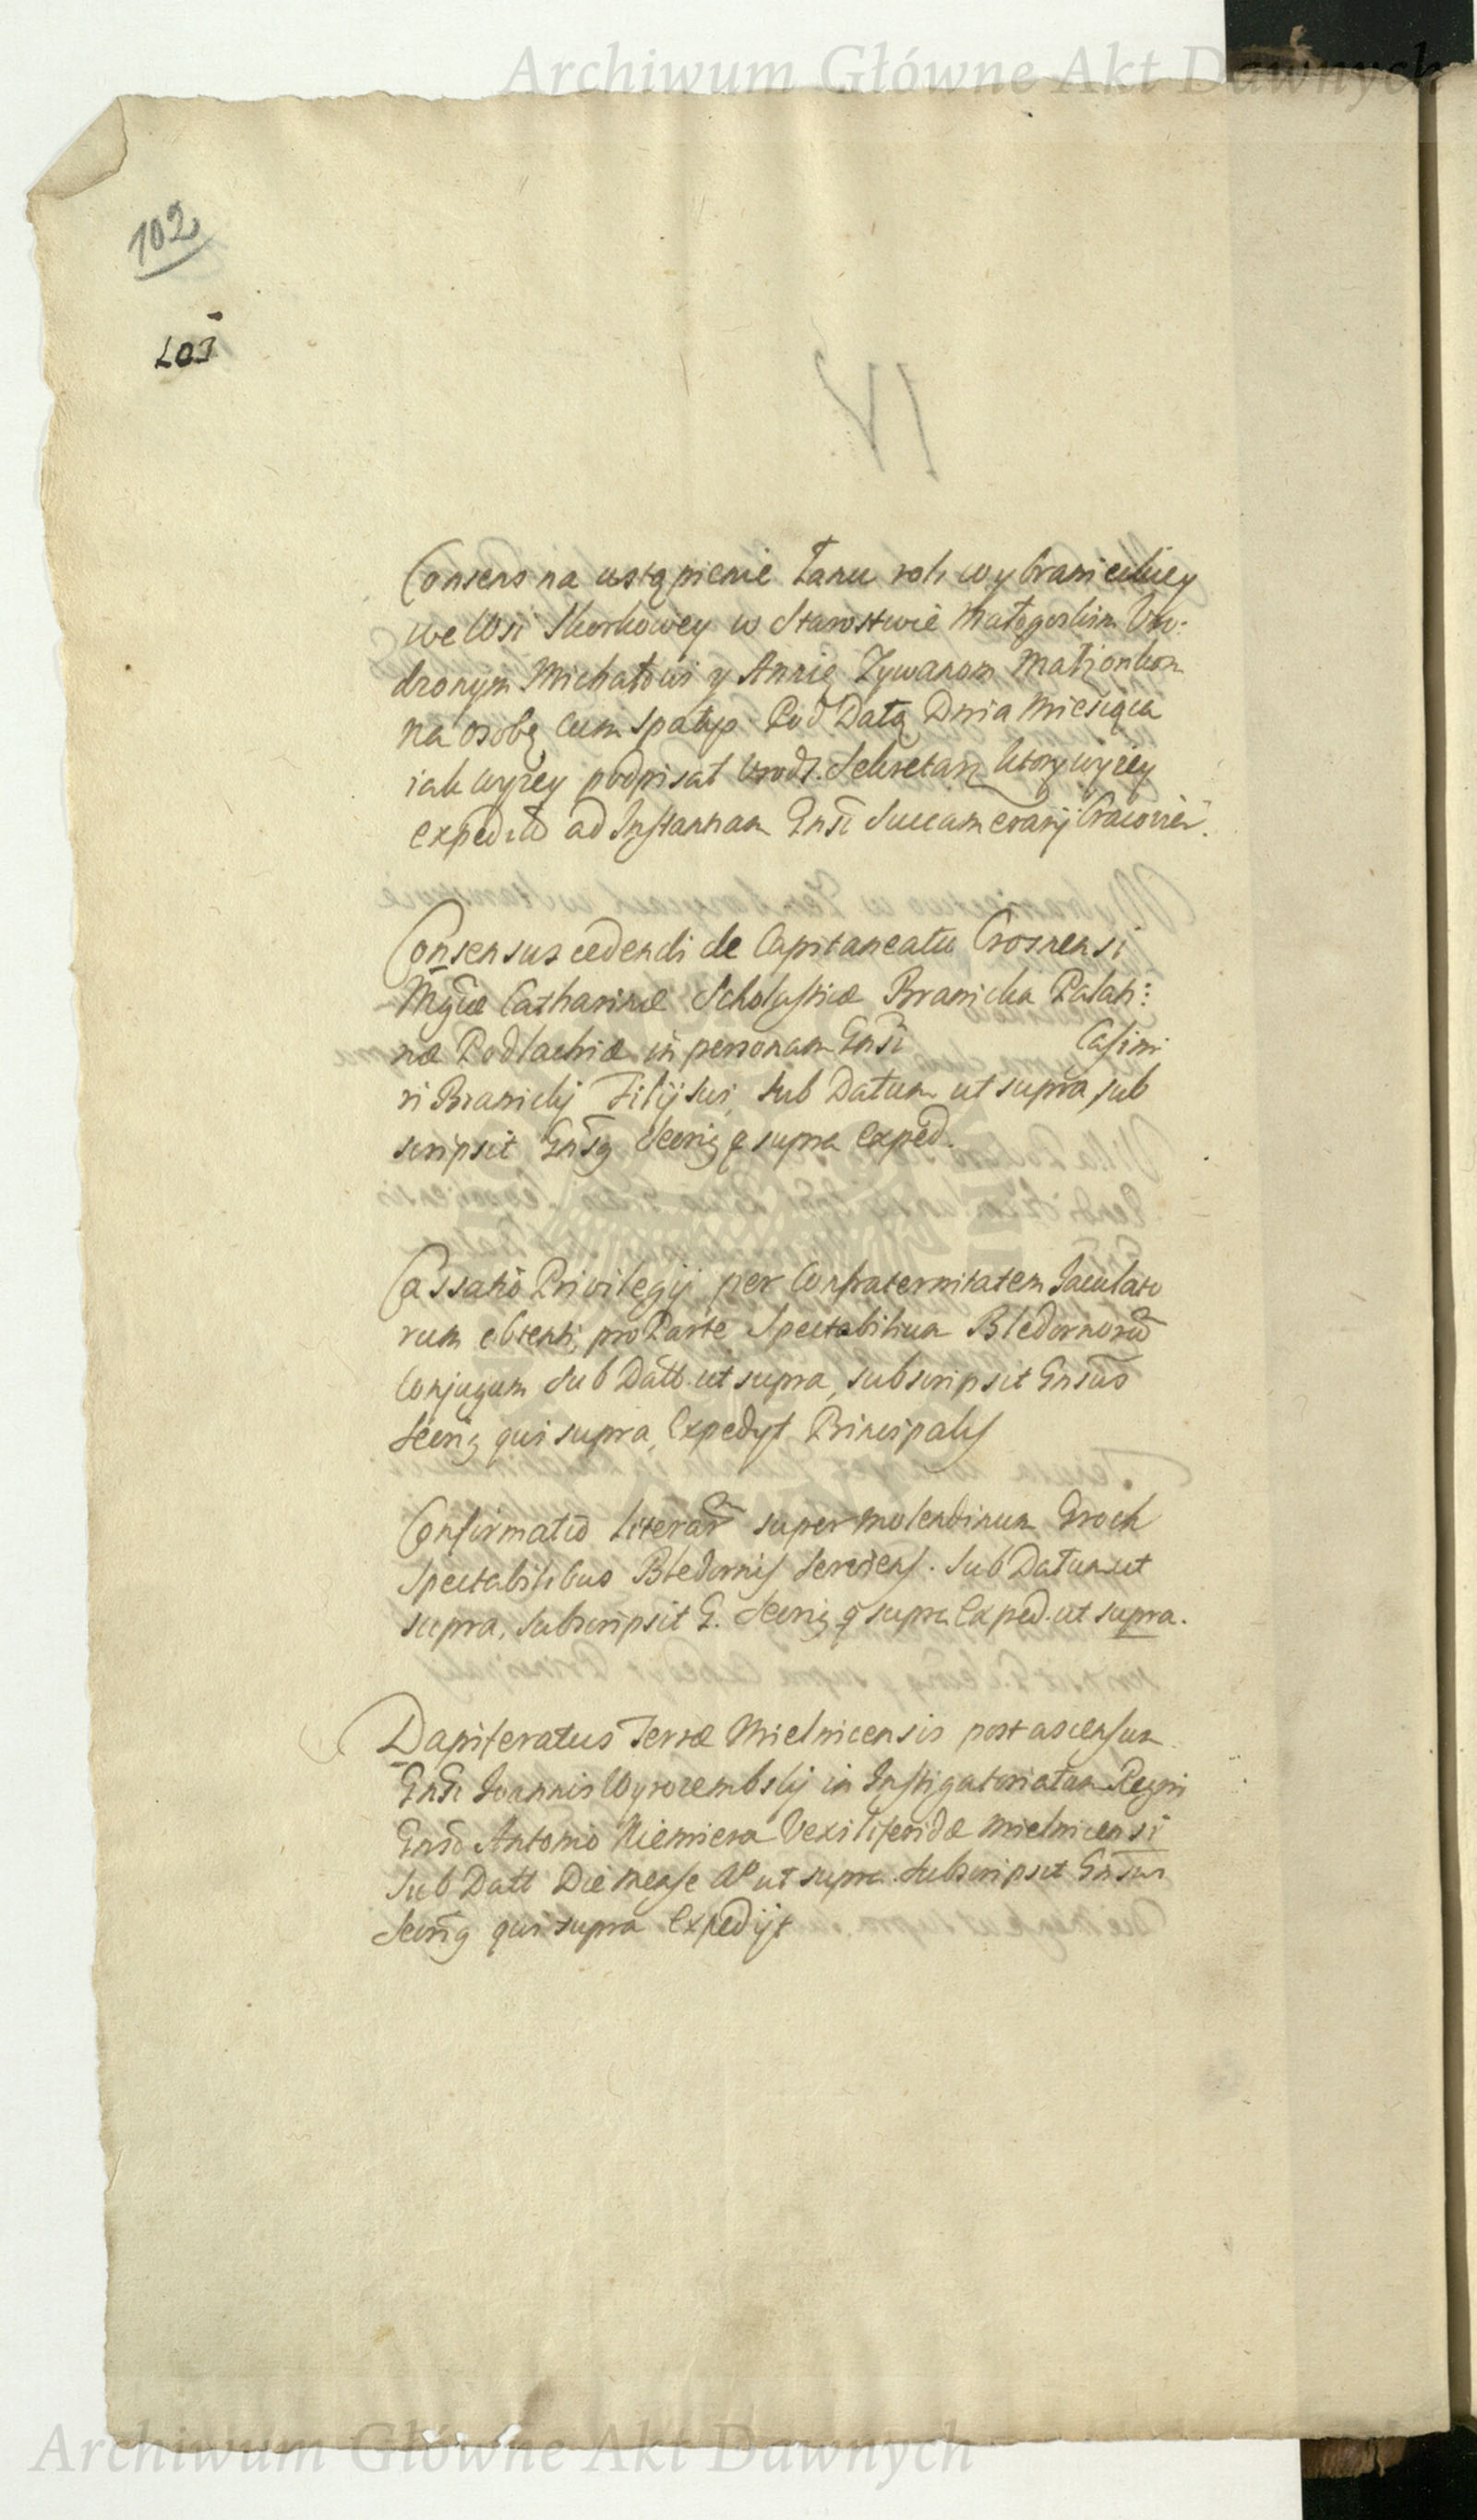 Archiwum Główne Akt Dawnych
102
Consens na ustąpienie Łanu roli wybranieckiey
we Wsi Skorkowey w Starostwie Małogoskim Uro-
dzonym Michałowi y Annie Zywanom Małżonkom
na osobę cum spatijs. Pod Datą Dnia Miesiąca
iak wyżey podpisał Urodz. Sekretarz ktory wyżey
expedit ad Instantiam Gnsi Succamerarij Cracovien.
Consensus cedendi de Capitaneatu Crosnensi
Mgcæ Catharinæ Scholasticæ Branicka Palati:
næ Podlachiæ in personam Gnsi Casimi
ri Branicky Filij sui, sub Datum ut supra, sub
scripsit Gnsg Secrig q supra exped.
Cassatio Privilegij per Confraternitatem Jaculato
rum obtenti, pro Parte Spectabilium Bledornorū
Conjugum Sub Datt. ut supra, subscripsit Gnsus
Secrig qui supra, Expedyt Principalis
Confirmatio Literar super molendinum Groch
Spectabilibus Bledornis serviens. Sub Datum ut
supra, subscripsit G. Secrig q supra Exped. ut supra.
Dapiferatus Terræ Mielnicensis post ascensum
Gnsi Joannis Wyrozembsky in Instigatoriatum Regni
Gnso Antonio Niemiera Vexiliferidæ Mielnicensi
Sub Datt Die Mense Ao ut supra. Subscripsit Gnsus
Secrig qui supra Expedijt
Archiwum Główne Akt Dawnych